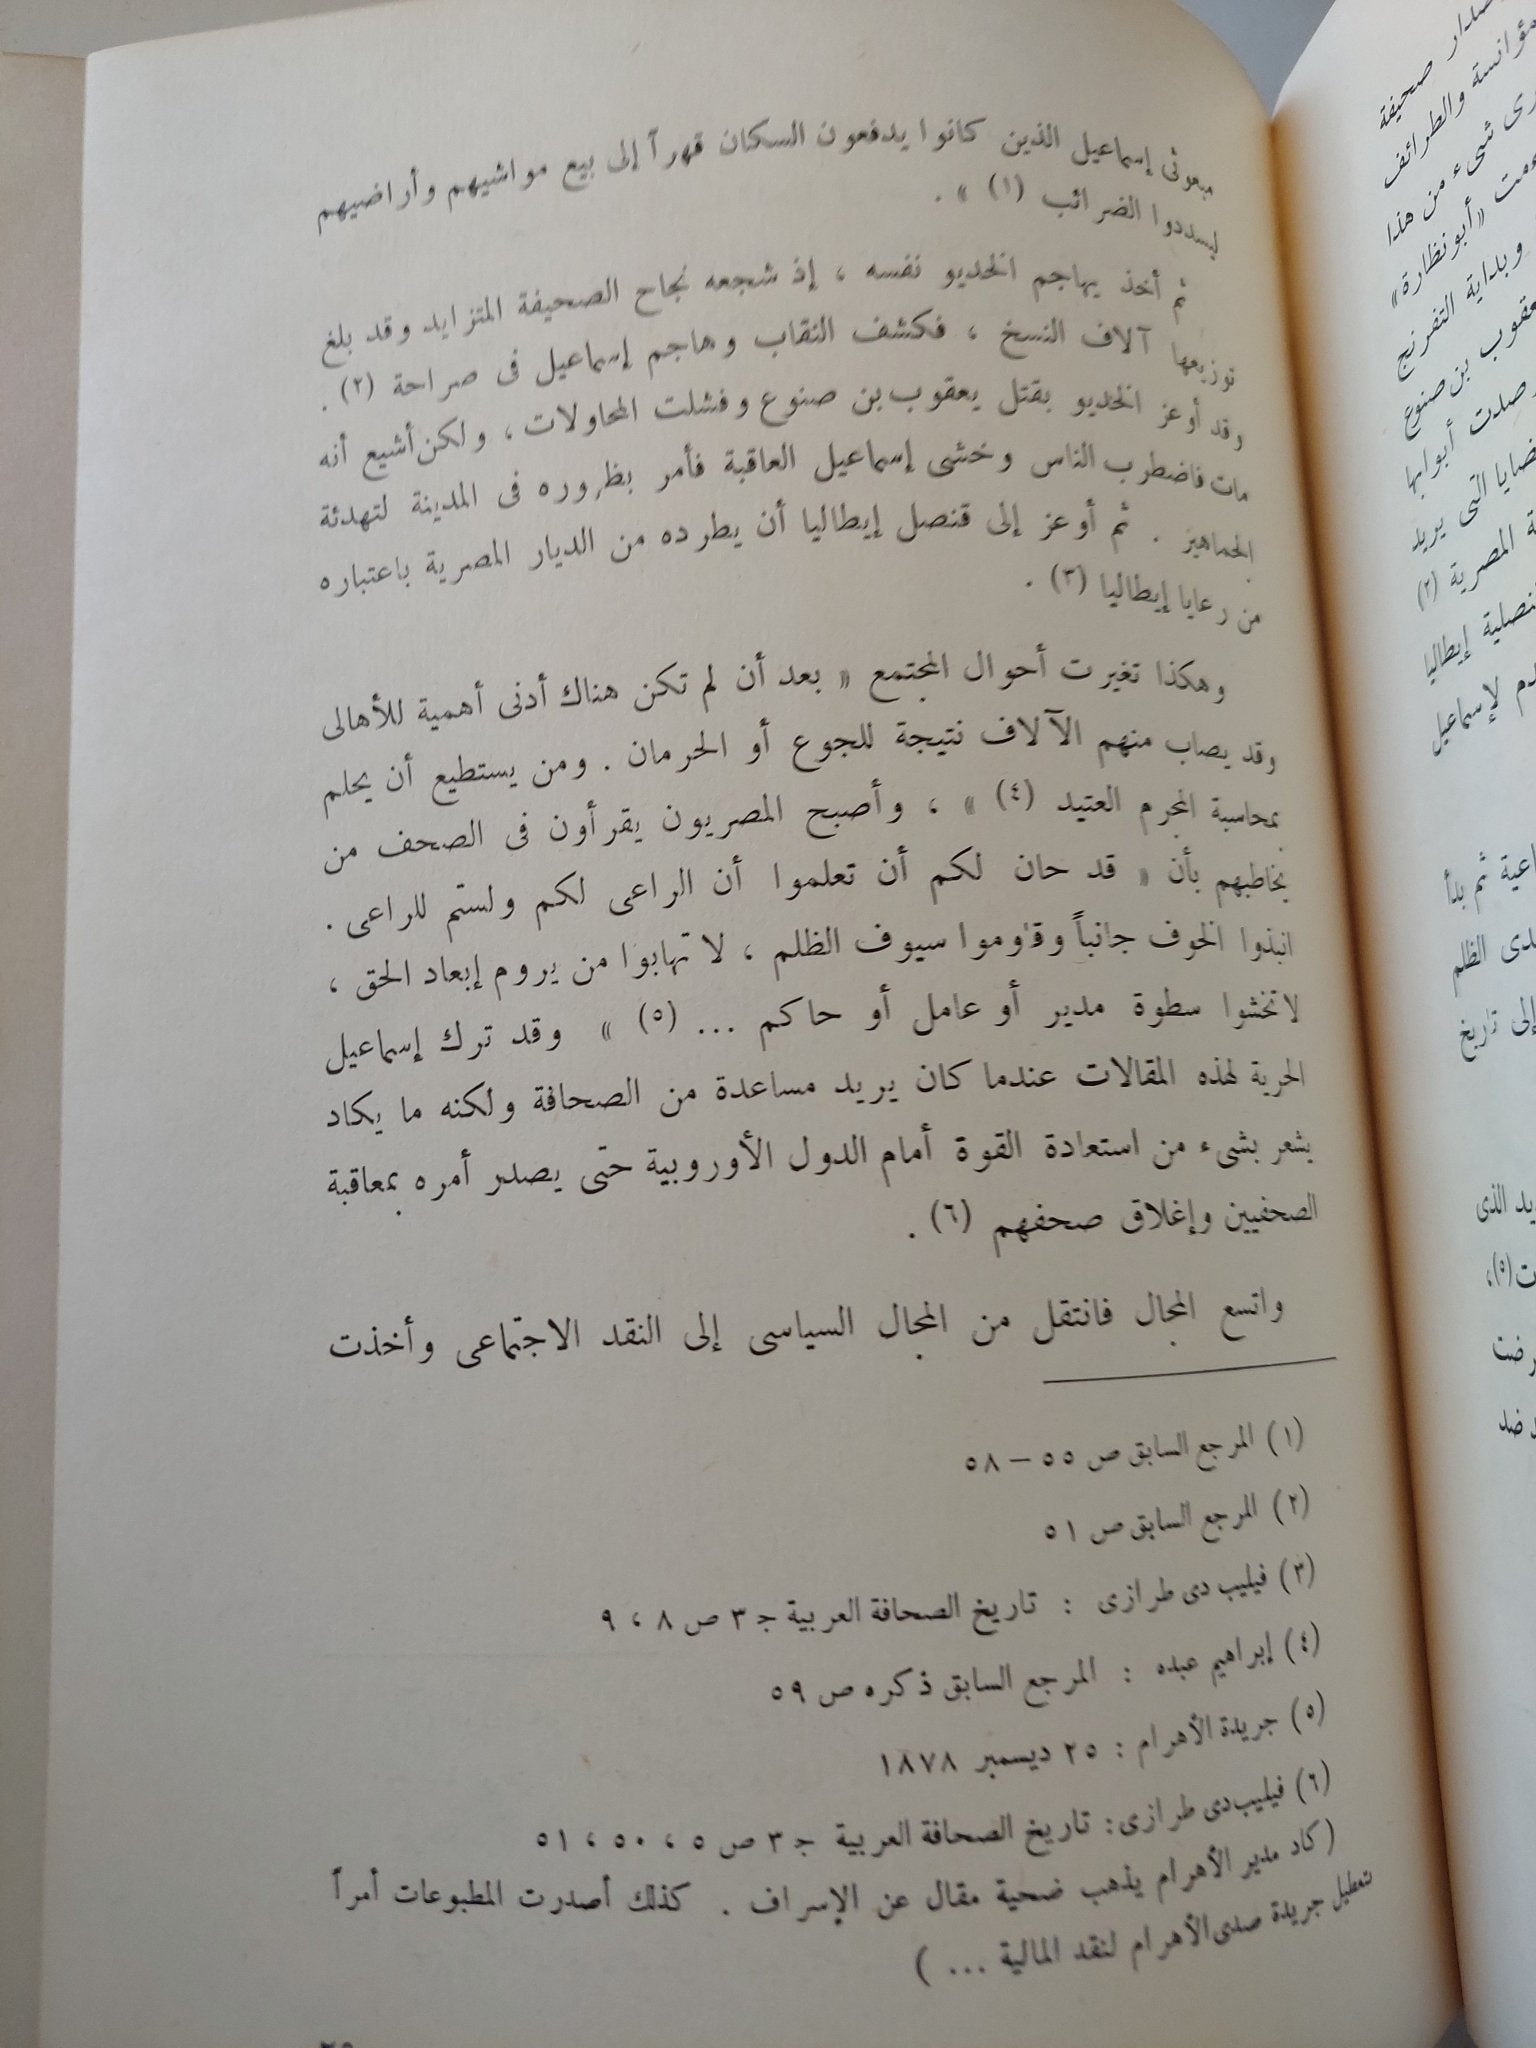 مبعوثى إسماعيل الذين كانوا يدفعون السكان قهراً إلى بيع مواشيهم وأراضيهم
ليسددوا الضرائب (١) » .
ثم أخذ يهاجم الخديو نفسه ، إذ شجعه نجاح الصحيفة المتزايد وقد بلغ
توزيعها آلاف النسخ ، فكشف النقاب وهاجم إسماعيل فى صراحة (٢) .
وقد أوعز الخديو بقتل يعقوب بن صنوع وفشلت المحاولات ، ولكن أشيع أنه
مات فاضطرب الناس وخشى إسماعيل العاقبة فأمر بظهوره فى المدينة لتهدئة
الجماهير . ثم أوعز إلى قنصل إيطاليا أن يطرده من الديار المصرية باعتباره
من رعايا إيطاليا (٣) .
وهكذا تغيرت أحوال المجتمع « بعد أن لم تكن هناك أدنى أهمية للأهالى
وقد يصاب منهم الآلاف نتيجة للجوع أو الحرمان . ومن يستطيع أن يحلم
بمحاسبة المجرم العتيد (٤) » ، وأصبح المصريون يقرأون فى الصحف من
يخاطبهم بأن « قد حان لكم أن تعلموا أن الراعى لكم ولستم للراعى .
انبذوا الخوف جانباً وقاوموا سيوف الظلم ، لا تهابوا من يروم إبعاد الحق ،
لا تخشوا سطوة مدير أو عامل أو حاكم ... (٥) » وقد ترك إسماعيل
الحرية لهذه المقالات عندما كان يريد مساعدة من الصحافة ولكنه ما يكاد
يشعر بشىء من استعادة القوة أمام الدول الأوروبية حتى يصدر أمره بمعاقبة
الصحفيين وإغلاق صحفهم (٦) .
واتسع المجال فانتقل من المجال السياسى إلى النقد الاجتماعى وأخذت
(١) المرجع السابق ص ٥٥ – ٥٨
(٢) المرجع السابق ص ٥١
(٣) فيليب دى طرازى : تاريخ الصحافة العربية ج ٣ ص ٨ ، ٩
(٤) إبراهيم عبده : المرجع السابق ذكره ص ٥٩
(٥) جريدة الأهرام : ٢٥ ديسمبر ١٨٧٨
(٦) فيليب دى طرازى : تاريخ الصحافة العربية ج ٣ ص ٥ ، ٥٠ ، ٥١
(كاد مدير الأهرام يذهب ضحية مقال عن الإسراف . كذلك أصدرت المطبوعات أمراً
لتعطيل جريدة صدى الأهرام لنقد المالية ... )
صحيفة
مؤانسة والطرائف
شىء من هذا
«أبو نظارة»
وبداية التفرنج
يعقوب بن صنوع
صدت أبوابها
التى يريد
المصرية (٢)
إيطاليا
لإسماعيل
ثم بدأ
الظلم
إلى تاريخ
الذى
(٥)،
ضد